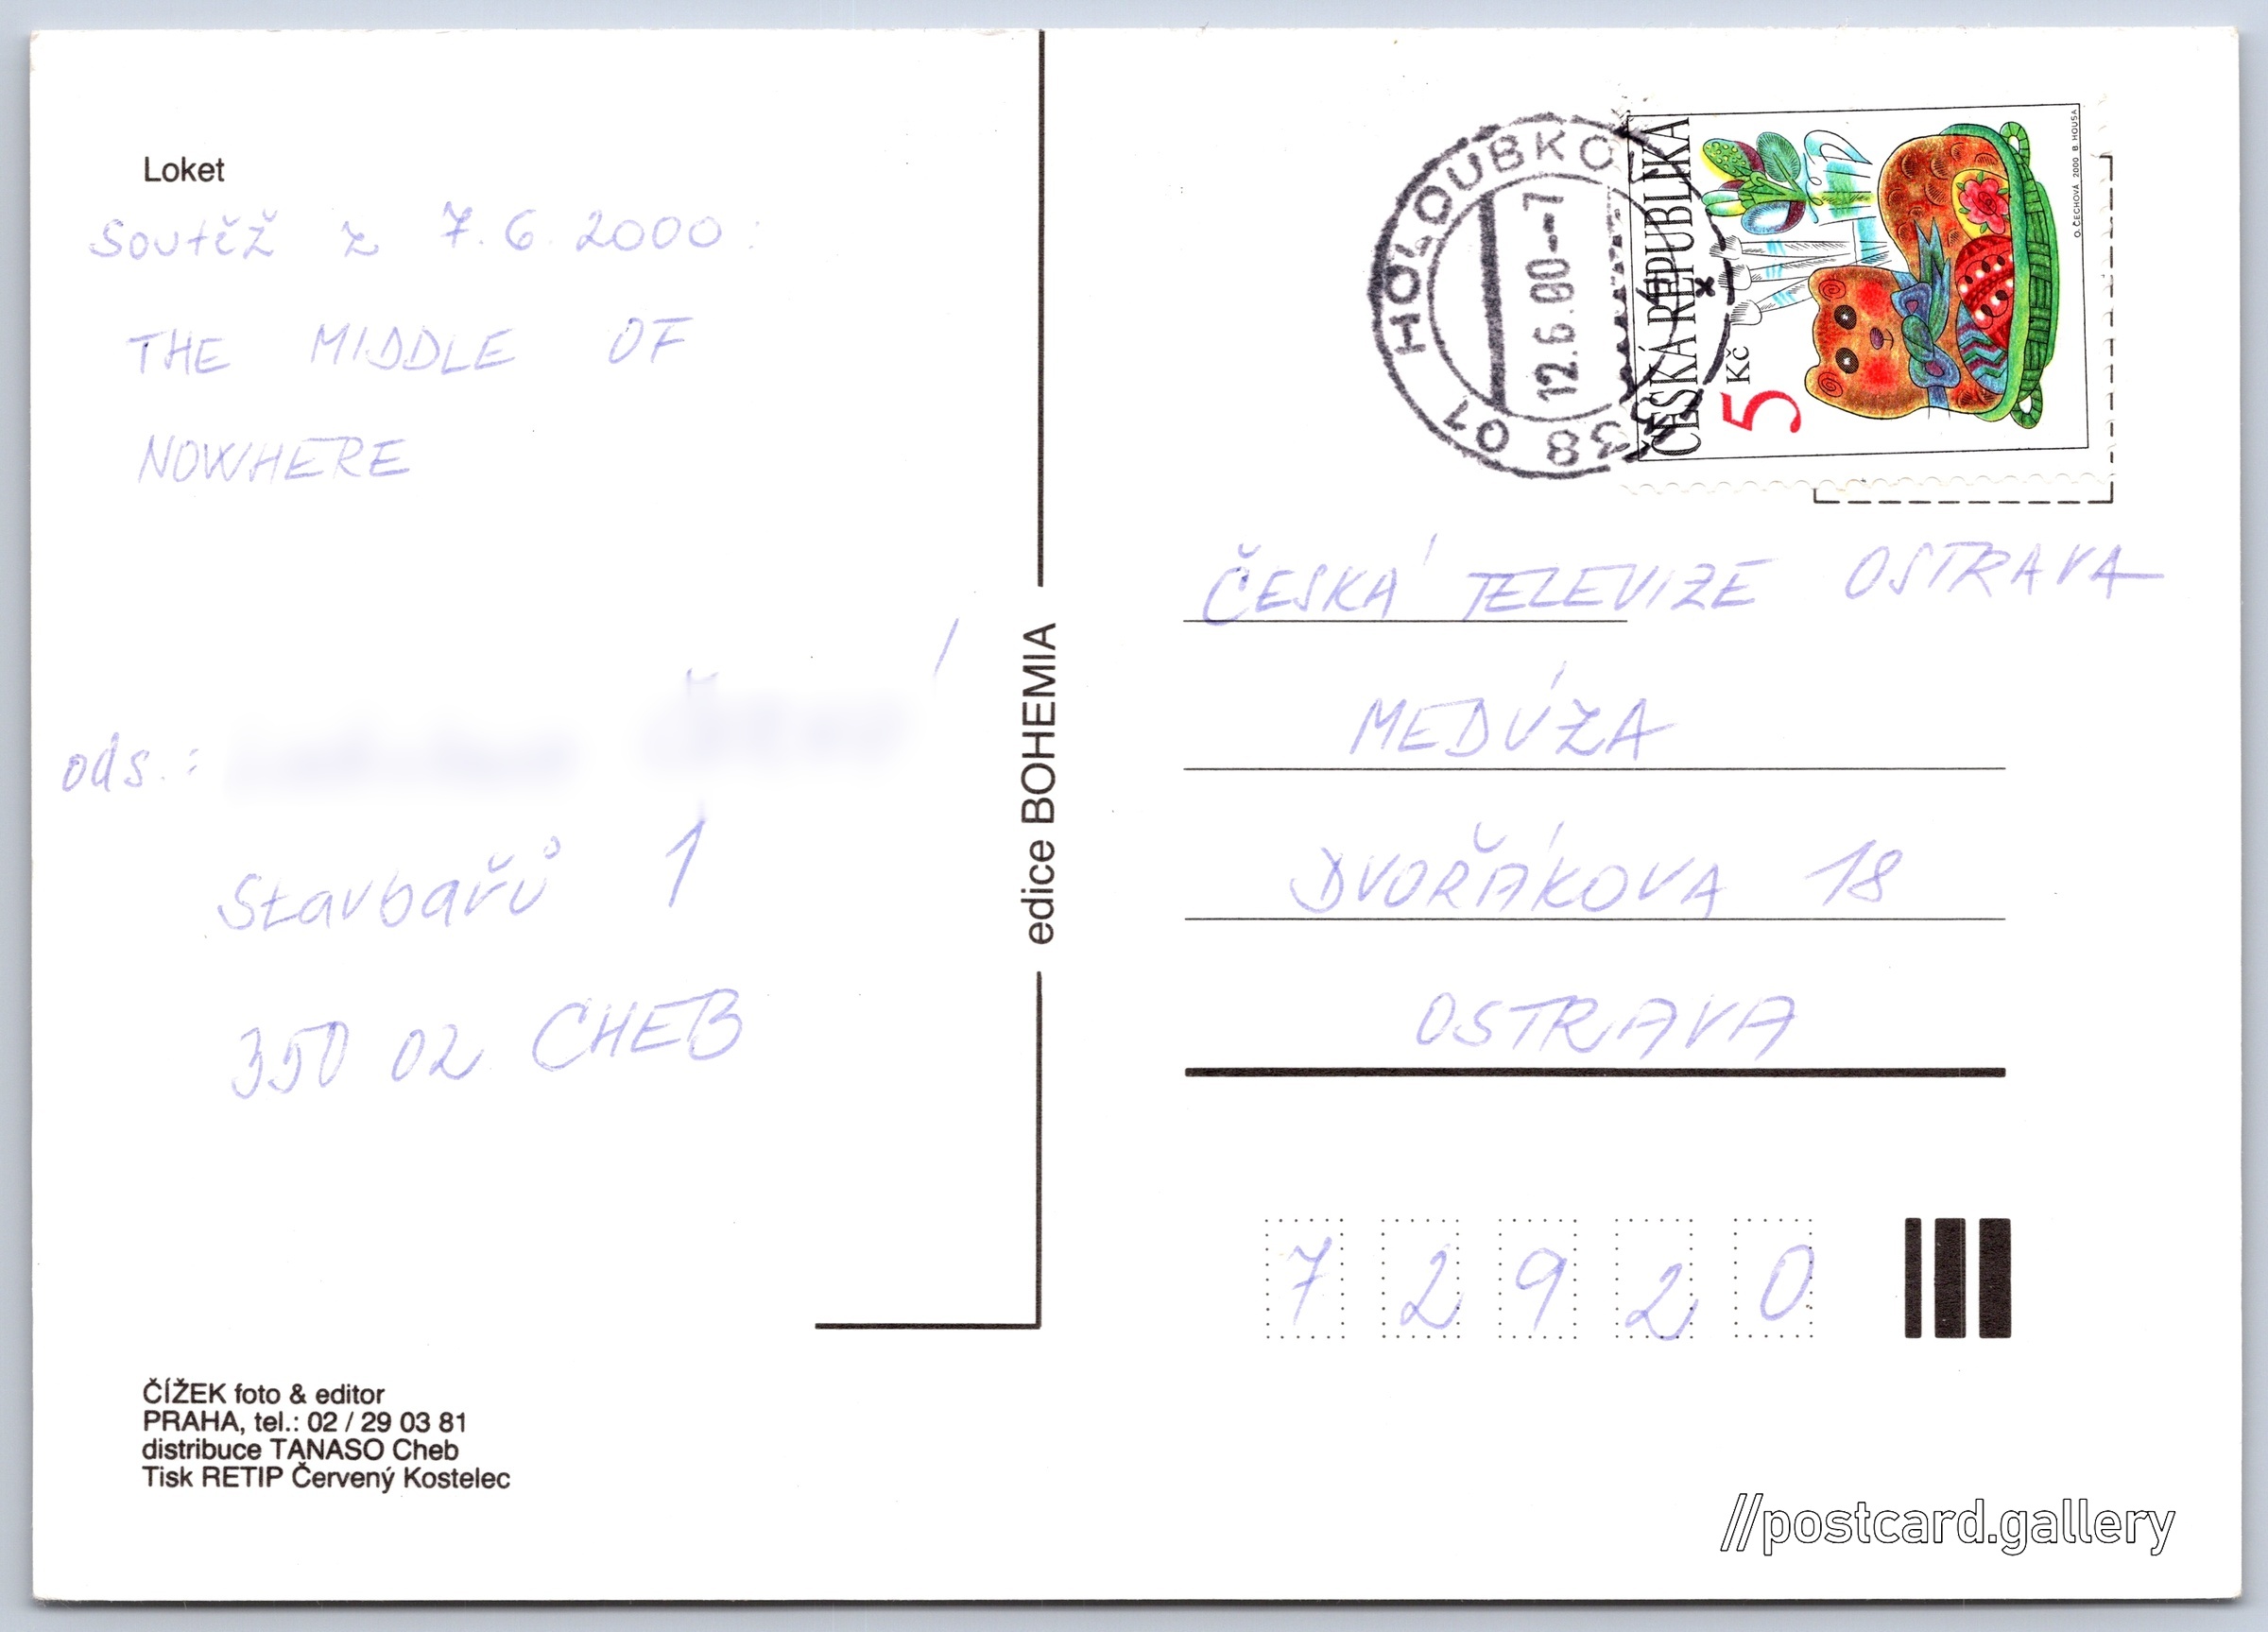 Loket
Soutěž z 7.6.2000:
THE MIDDLE OF
NOWHERE
ods.:
Stavbařů 1
350 02 CHEB
ČÍŽEK foto & editor
PRAHA, tel.: 02 / 29 03 81
distribuce TANASO Cheb
Tisk RETIP Červený Kostelec
edice BOHEMIA
HOLOUBKO
12.6.00--7
38 01
ČESKÁ REPUBLIKA
5 Kč
O. ČECHOVÁ 2000 B. HOUSA
ČESKÁ TELEVIZE OSTRAVA
MEDÚZA
DVOŘÁKOVA 18
OSTRAVA
7 2 9 2 0
//postcard.gallery